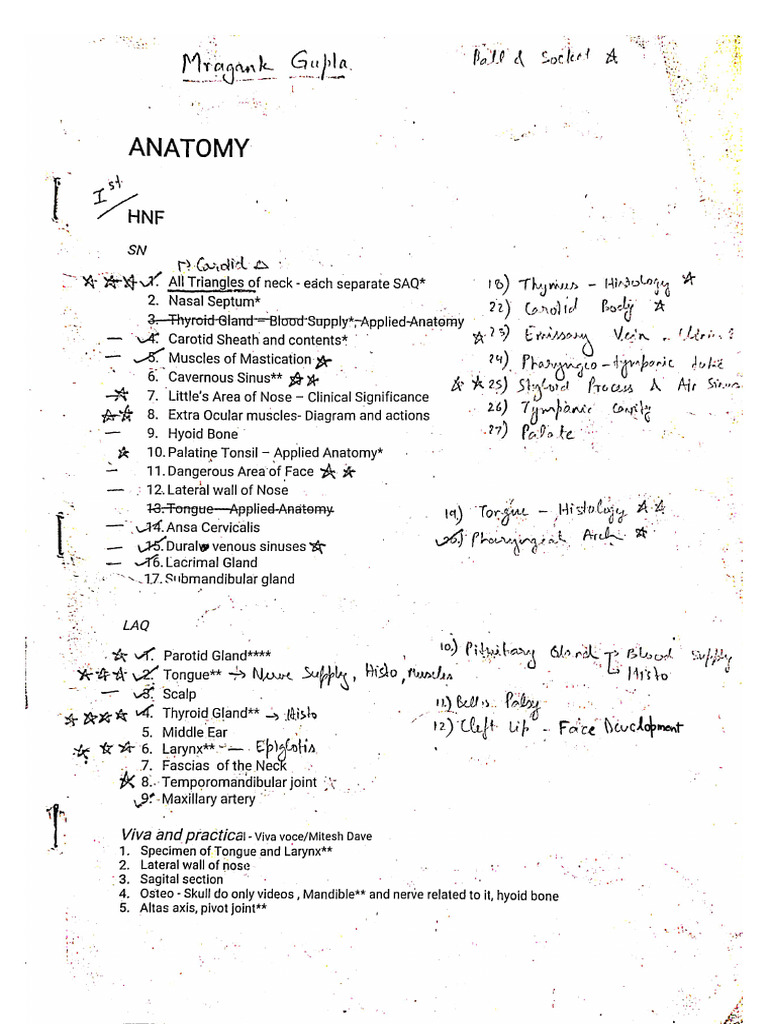 Mragank Gupta.
Ball & Socket ☆
ANATOMY
Ist
HNF
SN
↱ Carotid △
☆ ☆ ☆ ✓ 1. All Triangles of neck - each separate SAQ*
2. Nasal Septum*
3. Thyroid Gland – Blood Supply*, Applied Anatomy
— ✓ 4. Carotid Sheath and contents*
— ✓ 5. Muscles of Mastication ☆
6. Cavernous Sinus** ☆ ☆
☆ 7. Little's Area of Nose – Clinical Significance
☆ ☆ 8. Extra Ocular muscles- Diagram and actions
— 9. Hyoid Bone
☆ 10. Palatine Tonsil – Applied Anatomy*
— 11. Dangerous Area of Face ☆ ☆
— 12. Lateral wall of Nose
13. Tongue – Applied Anatomy
— ✓ 14. Ansa Cervicalis
— ✓ 15. Dural venous sinuses ☆
— ✓ 16. Lacrimal Gland
17. Submandibular gland
18) Thymus - Histology ☆
22) Carotid Body ☆
☆ 23) Emissary Vein
24) Pharyngeo - tympanic tube
☆ ☆ 25) Styloid Process & Air Sinus
26) Tympanic Cavity
27) Palate
19.) Tongue - Histology ☆ ☆
✓ 20.) Pharyngeal Arch ☆
LAQ
☆ ✓ 1. Parotid Gland****
☆ ☆ ☆ ✓ 2. Tongue** → Nerve Supply, Histo, Muscles
— ✓ 3. Scalp
☆ ☆ ☆ ☆ ✓ 4. Thyroid Gland** → Histo
5. Middle Ear
☆ ☆ ☆ 6. Larynx** — Epiglotis
7. Fascias of the Neck
☆ 8. Temporomandibular joint
✓ 9. Maxillary artery
10.) Pituitary Gland → Blood Supply
→ Histo
11) Bell's Palsy
12) Cleft Lip - Face Development
Viva and practical - Viva voce/Mitesh Dave
1. Specimen of Tongue and Larynx**
2. Lateral wall of nose
3. Sagital section
4. Osteo - Skull do only videos , Mandible** and nerve related to it, hyoid bone
5. Altas axis, pivot joint**